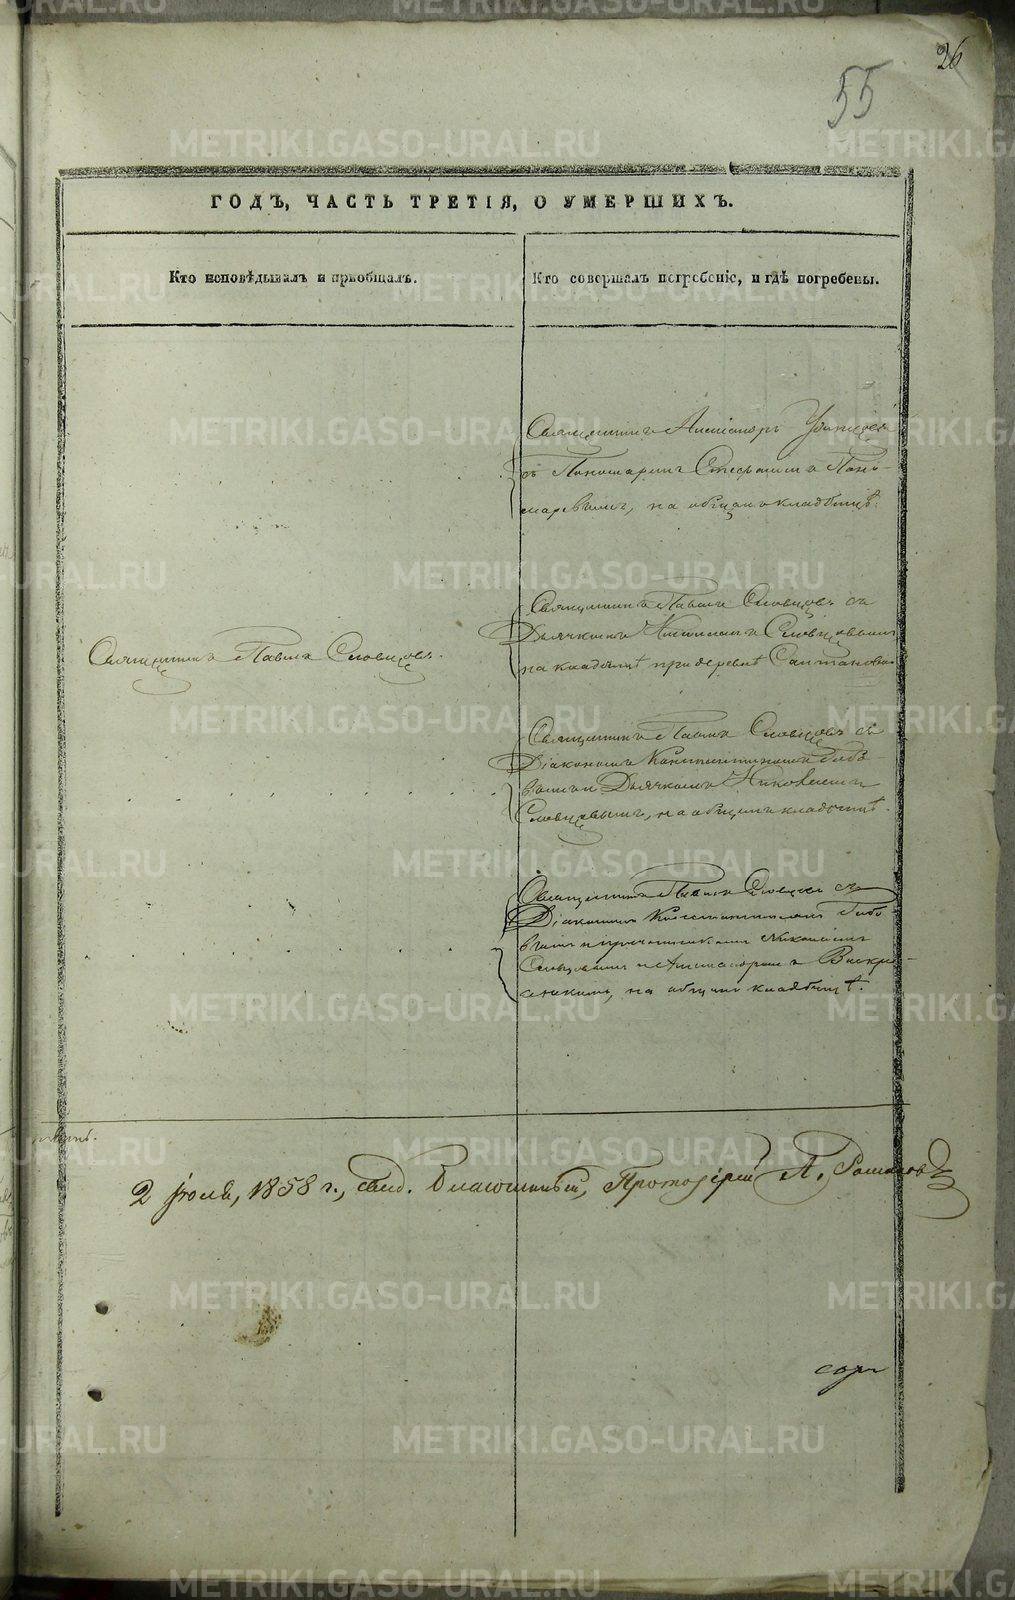 26
55
ГОДЪ, ЧАСТЬ ТРЕТІЯ, О УМЕРШИХЪ.
Кто исповѣдывалъ и пріобщалъ.
Кто совершалъ погребеніе, и гдѣ погребены.
Священникъ
съ Пономаремъ Стефаномъ Поно-
маревымъ, на общемъ кладбищѣ.
Священникъ Павелъ Словцовъ.
Священникъ Павелъ Словцовъ съ
Дьячкомъ Николаемъ Словцовымъ
на кладбищѣ при деревнѣ
Священникъ Павелъ Словцовъ съ
Діакономъ Константиномъ
Дьячкомъ Николаемъ
Словцовымъ, на общемъ кладбищѣ.
Священникъ Павелъ Словцовъ съ
Діакономъ Константиномъ
и причетниками Николаемъ
Словцовымъ и Воскре-
сенскимъ, на общемъ кладбищѣ.
2 Іюля, 1858 г., Благочинный, Протоіерей А.
METRIKI.GASO-URAL.RU